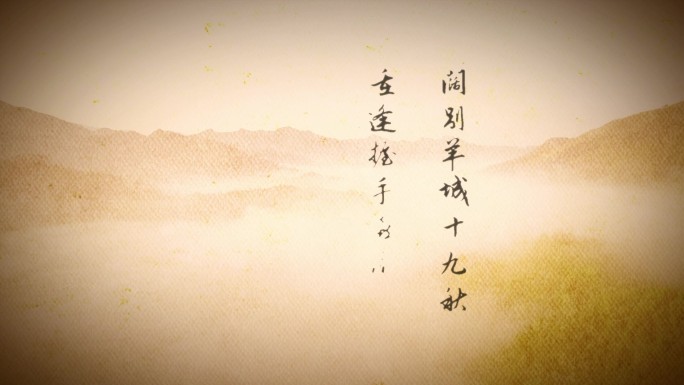 阔别羊城十九秋
重逢握手